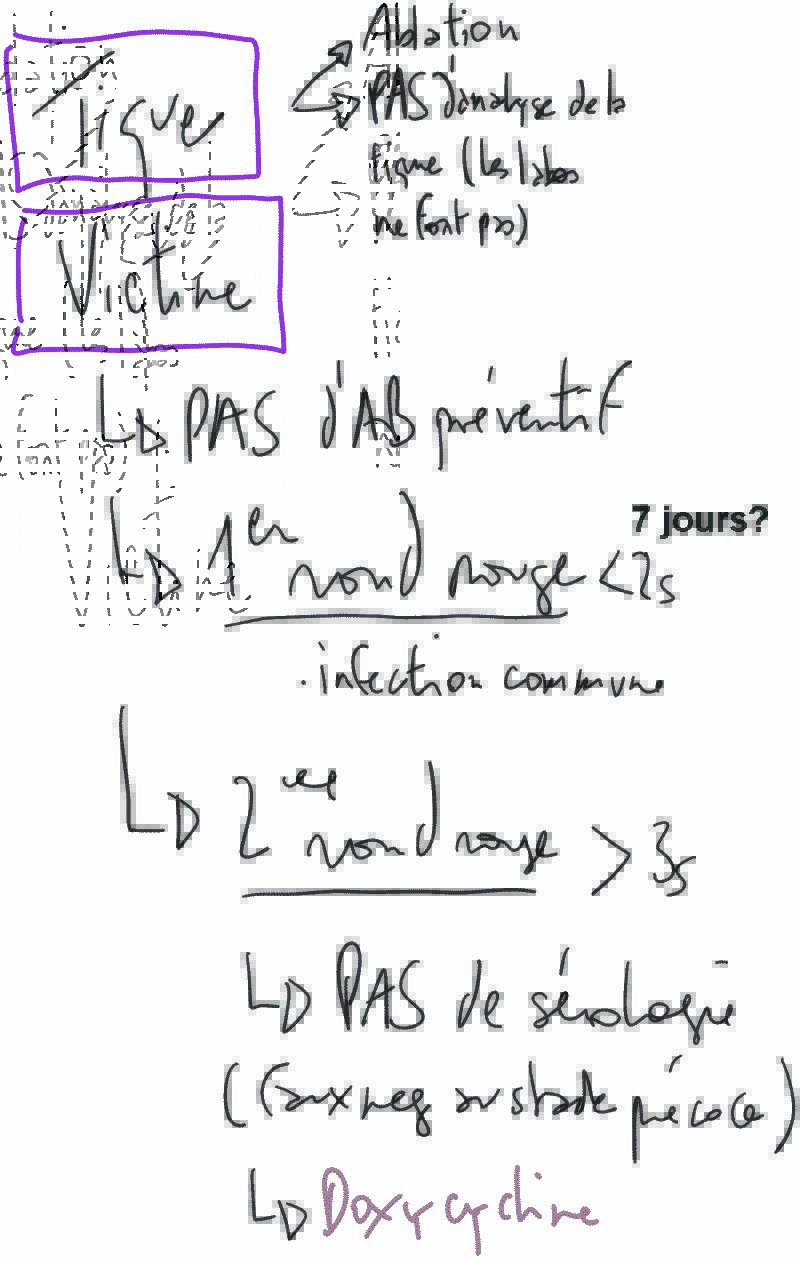 Tique
Ablation
PAS d'analyse de la
tique (les labos
ne font pas)
Victime
PAS d'AB préventif
7 jours?
1er rond rouge <2s
. infection commune
2eme rond rouge > 3s
PAS de sérologie
(faux neg au stade précoce)
Doxycycline